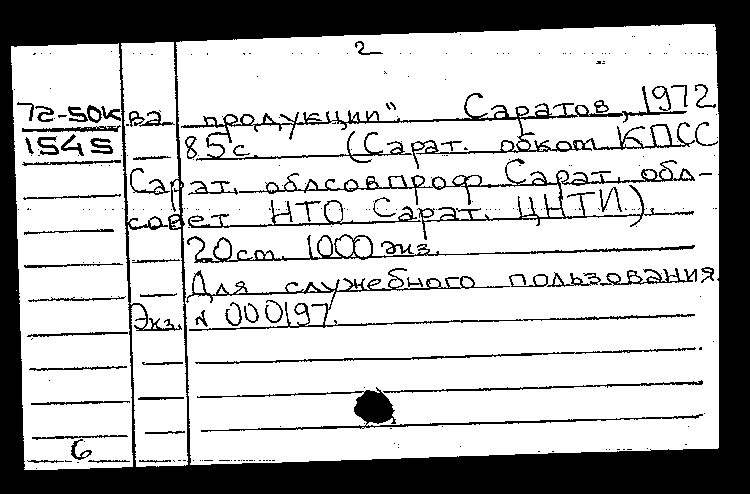 2
72-50к ва продукции". Саратов, 1972
1545 85с. (Сарат. обком КПСС
Сарат. облсовпроф. Сарат. обл-
совет НТО. Сарат. ЦНТИ).
20см. 1000 экз.
Для служебного пользования.
Экз. № 000197.
6